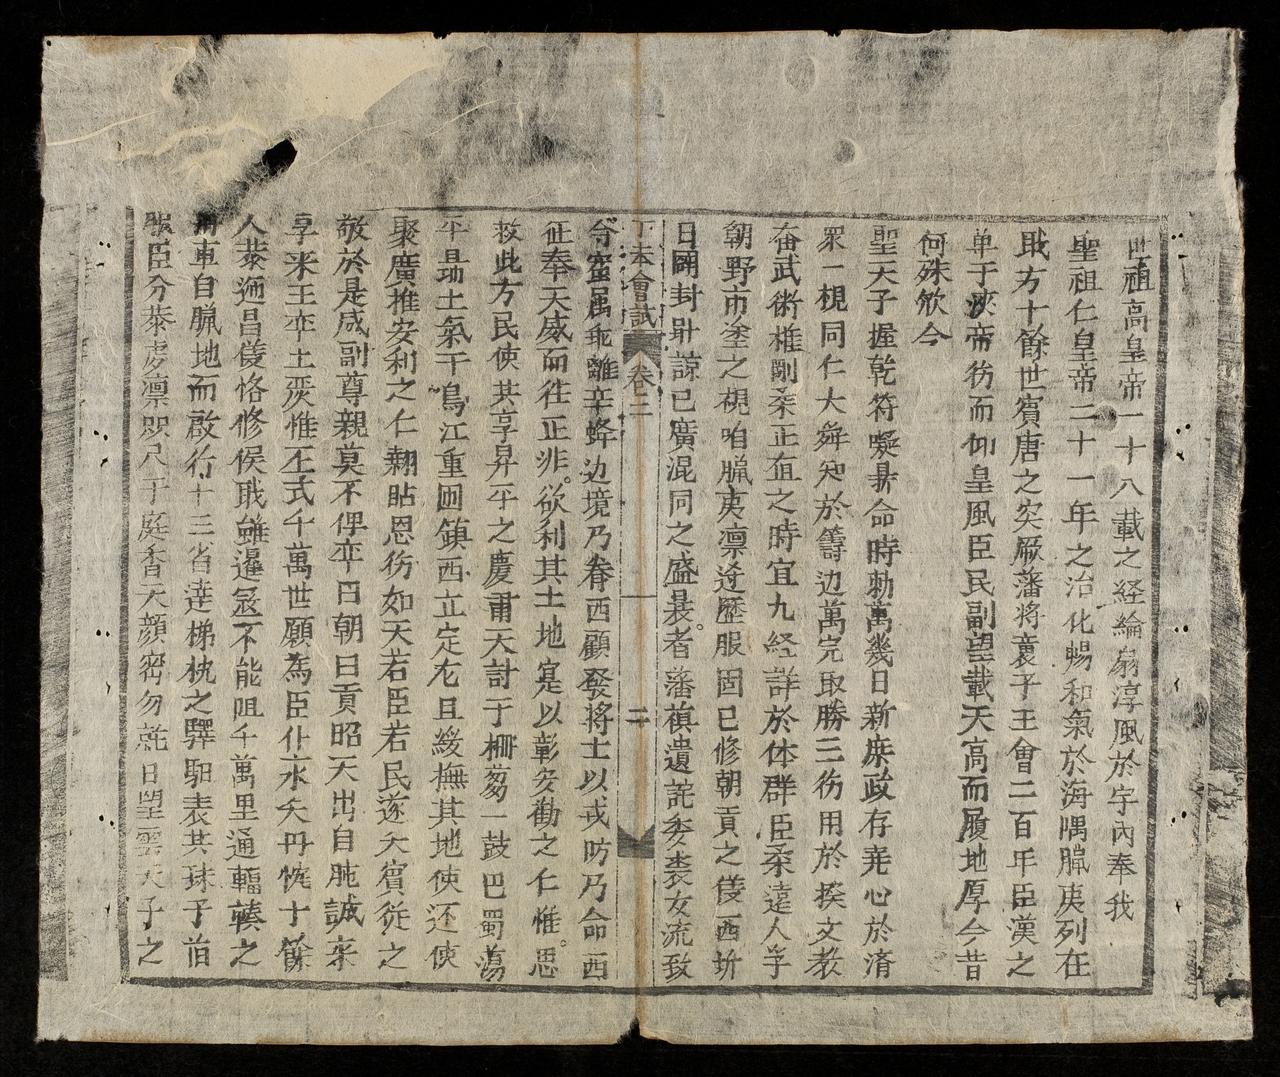 世祖高皇帝一十八載之経綸扇淳風於宇內奉我
聖祖仁皇帝二十一年之治化暢和氣於海隅臘夷列在
戢方十餘世賓唐之突厥藩将襄子王會二百年臣漢之
单于浹帝彷而仰皇風臣民副望載天高而履地厚今昔
何殊欤今
聖天子握乾符凝鼎命時勅萬幾日新庶政存尭心於済
眾一視同仁大舜知於籌边萬完取勝三彷用於揆文教
奋武術惟剛柔正在之時宜九経詳於体群臣柔遠人孚
朝野市塗之視咱臘夷凛迩歷服固已修朝貢之儀西圻
日闢封疆諒已廣混同之盛曩者藩禛遺詫委裘女流致
丁未會試 卷二 二
令蜜属乖離辛蜂边境乃眷西顧發将士以戎昉乃命西
征奉天威而往正非欲利其土地寔以彰安勸之仁惟思
救此方民使其享昇平之慶肅天討于柵芻一鼓巴蜀蕩
平最土氣于烏江重囬鎮西立定尨且緩撫其地使还使
聚廣推安利之仁翱貼恩彷如天若臣若民遂夭賓従之
敬於是咸副尊親莫不俾卒日朝日貢昭天出自肫誠来
享来王卒土戾惟丕式千萬世願為臣仆永矢丹忱十餘
人恭迤昌儀恪修侯戢雖暹寇不能阻千萬里通輻輳之
舟車自臘地而啟行十三省達梯杭之驛馹表其琜予旨
服臣分恭虔凛咫尺于庭香天顔密勿就日望雲天子之